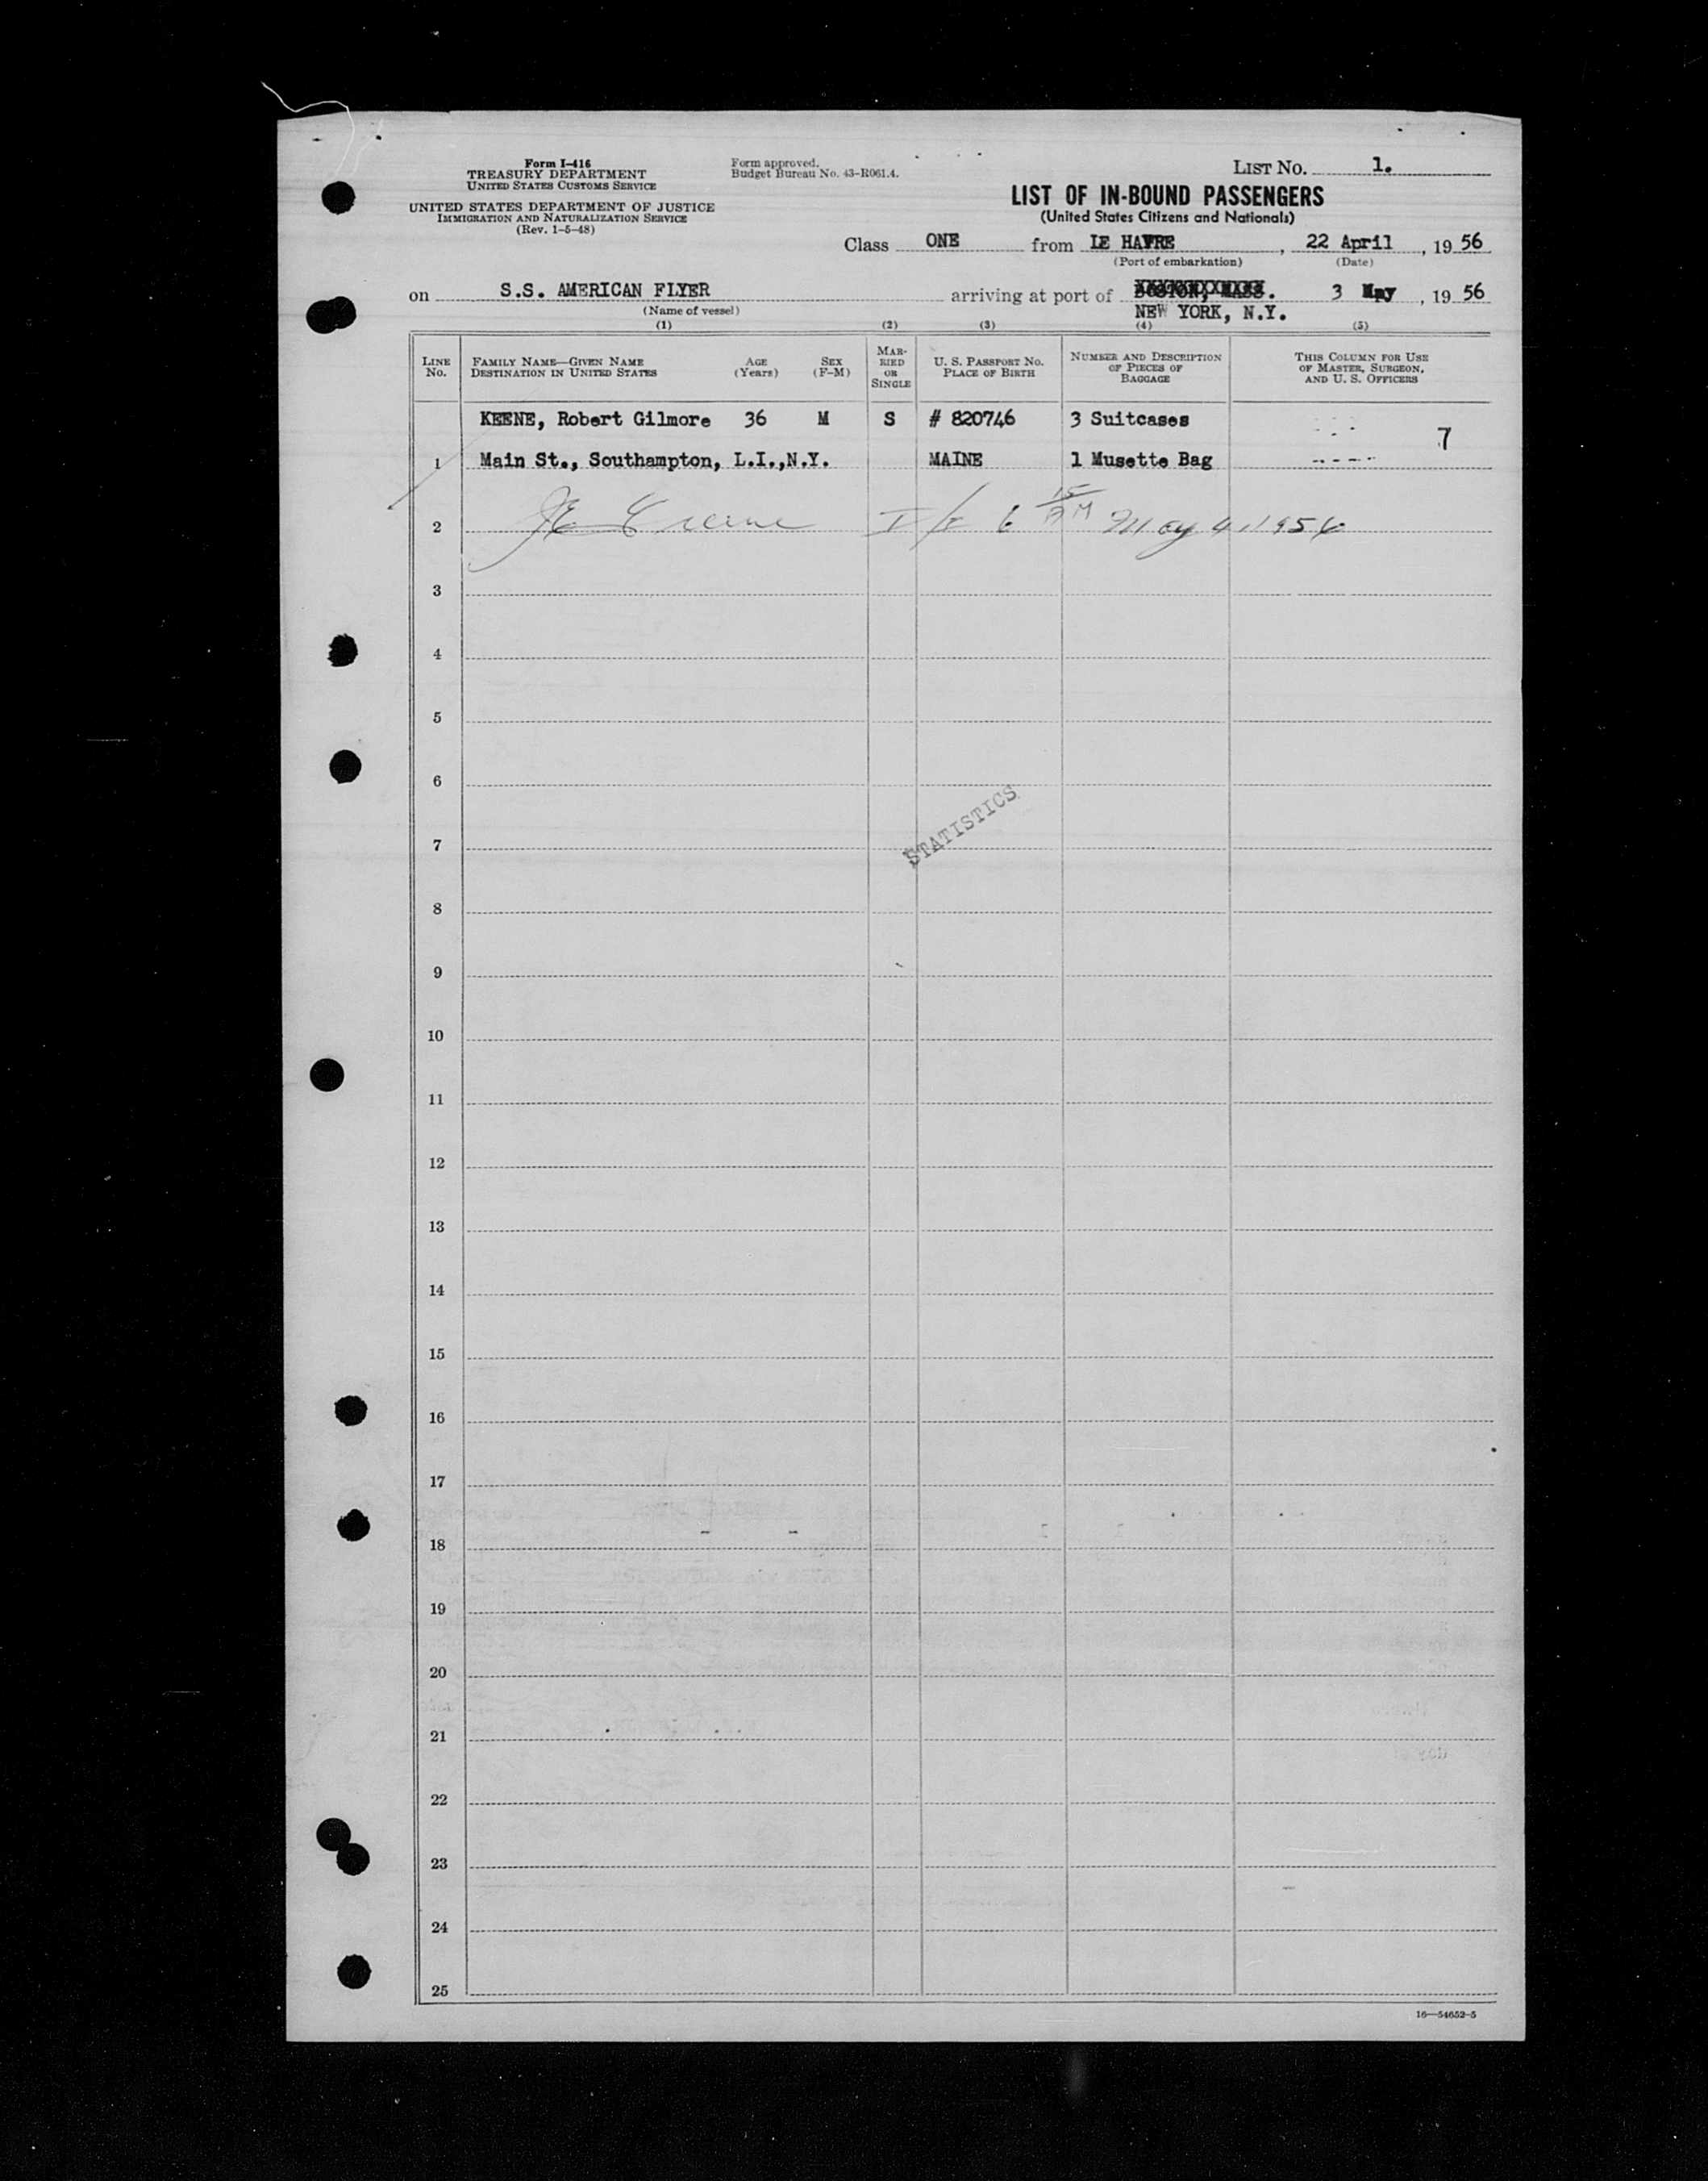 Form I-416
TREASURY DEPARTMENT
UNITED STATES CUSTOMS SERVICE
UNITED STATES DEPARTMENT OF JUSTICE
IMMIGRATION AND NATURALIZATION SERVICE
(Rev. 1-5-48)
Form approved.
Budget Bureau No. 43-R061.4.
LIST NO. 1.
LIST OF IN-BOUND PASSENGERS
(United States Citizens and Nationals)
Class ONE from LE HAVRE, 22 April, 19 56
(Port of embarkation) (Date)
on S.S. AMERICAN FLYER arriving at port of BOSTON, MASS. 3 May, 19 56
(Name of vessel) NEW YORK, N.Y.
(1) (2) (3) (4) (5)
LINE No. FAMILY NAME—GIVEN NAME DESTINATION IN UNITED STATES AGE (Years) SEX (F-M) MARRIED OR SINGLE U. S. PASSPORT NO. PLACE OF BIRTH NUMBER AND DESCRIPTION OF PIECES OF BAGGAGE THIS COLUMN FOR USE OF MASTER, SURGEON, AND U. S. OFFICERS
KEENE, Robert Gilmore 36 M S # 820746 3 Suitcases 7
1 Main St., Southampton, L.I.,N.Y. MAINE 1 Musette Bag
2 May 4, 1956
3
4
5
6
STATISTICS
7
8
9
10
11
12
13
14
15
16
17
18
19
20
21
22
23
24
25
16—54652-5